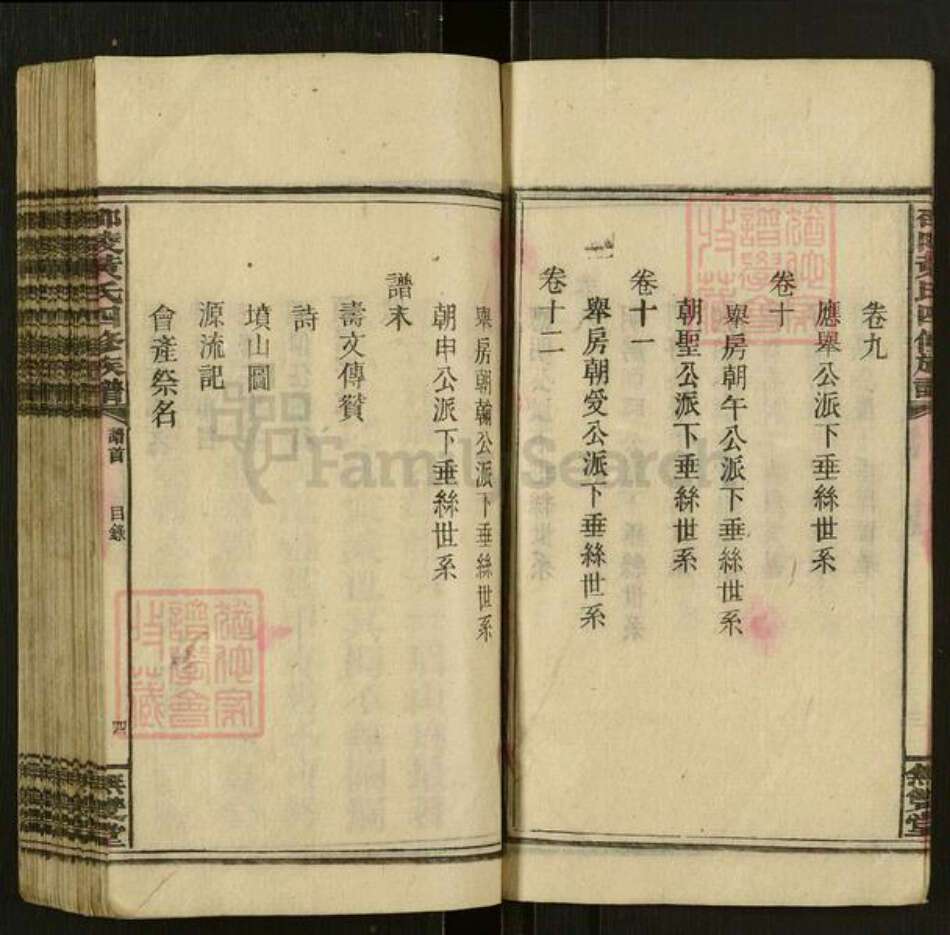 卷九
應舉公派下垂絲世系
卷十
舉房朝午公派下垂絲世系
朝聖公派下垂絲世系
卷十一
舉房朝爱公派下垂絲世系
卷十二
舉房朝翰公派下垂絲世系
朝申公派下垂絲世系
譜末
壽文傳贊
詩
墳山圖
源流記
會產祭名
邵陵黃氏四修族譜
譜首
目錄
四
無雙堂
FamilySearch